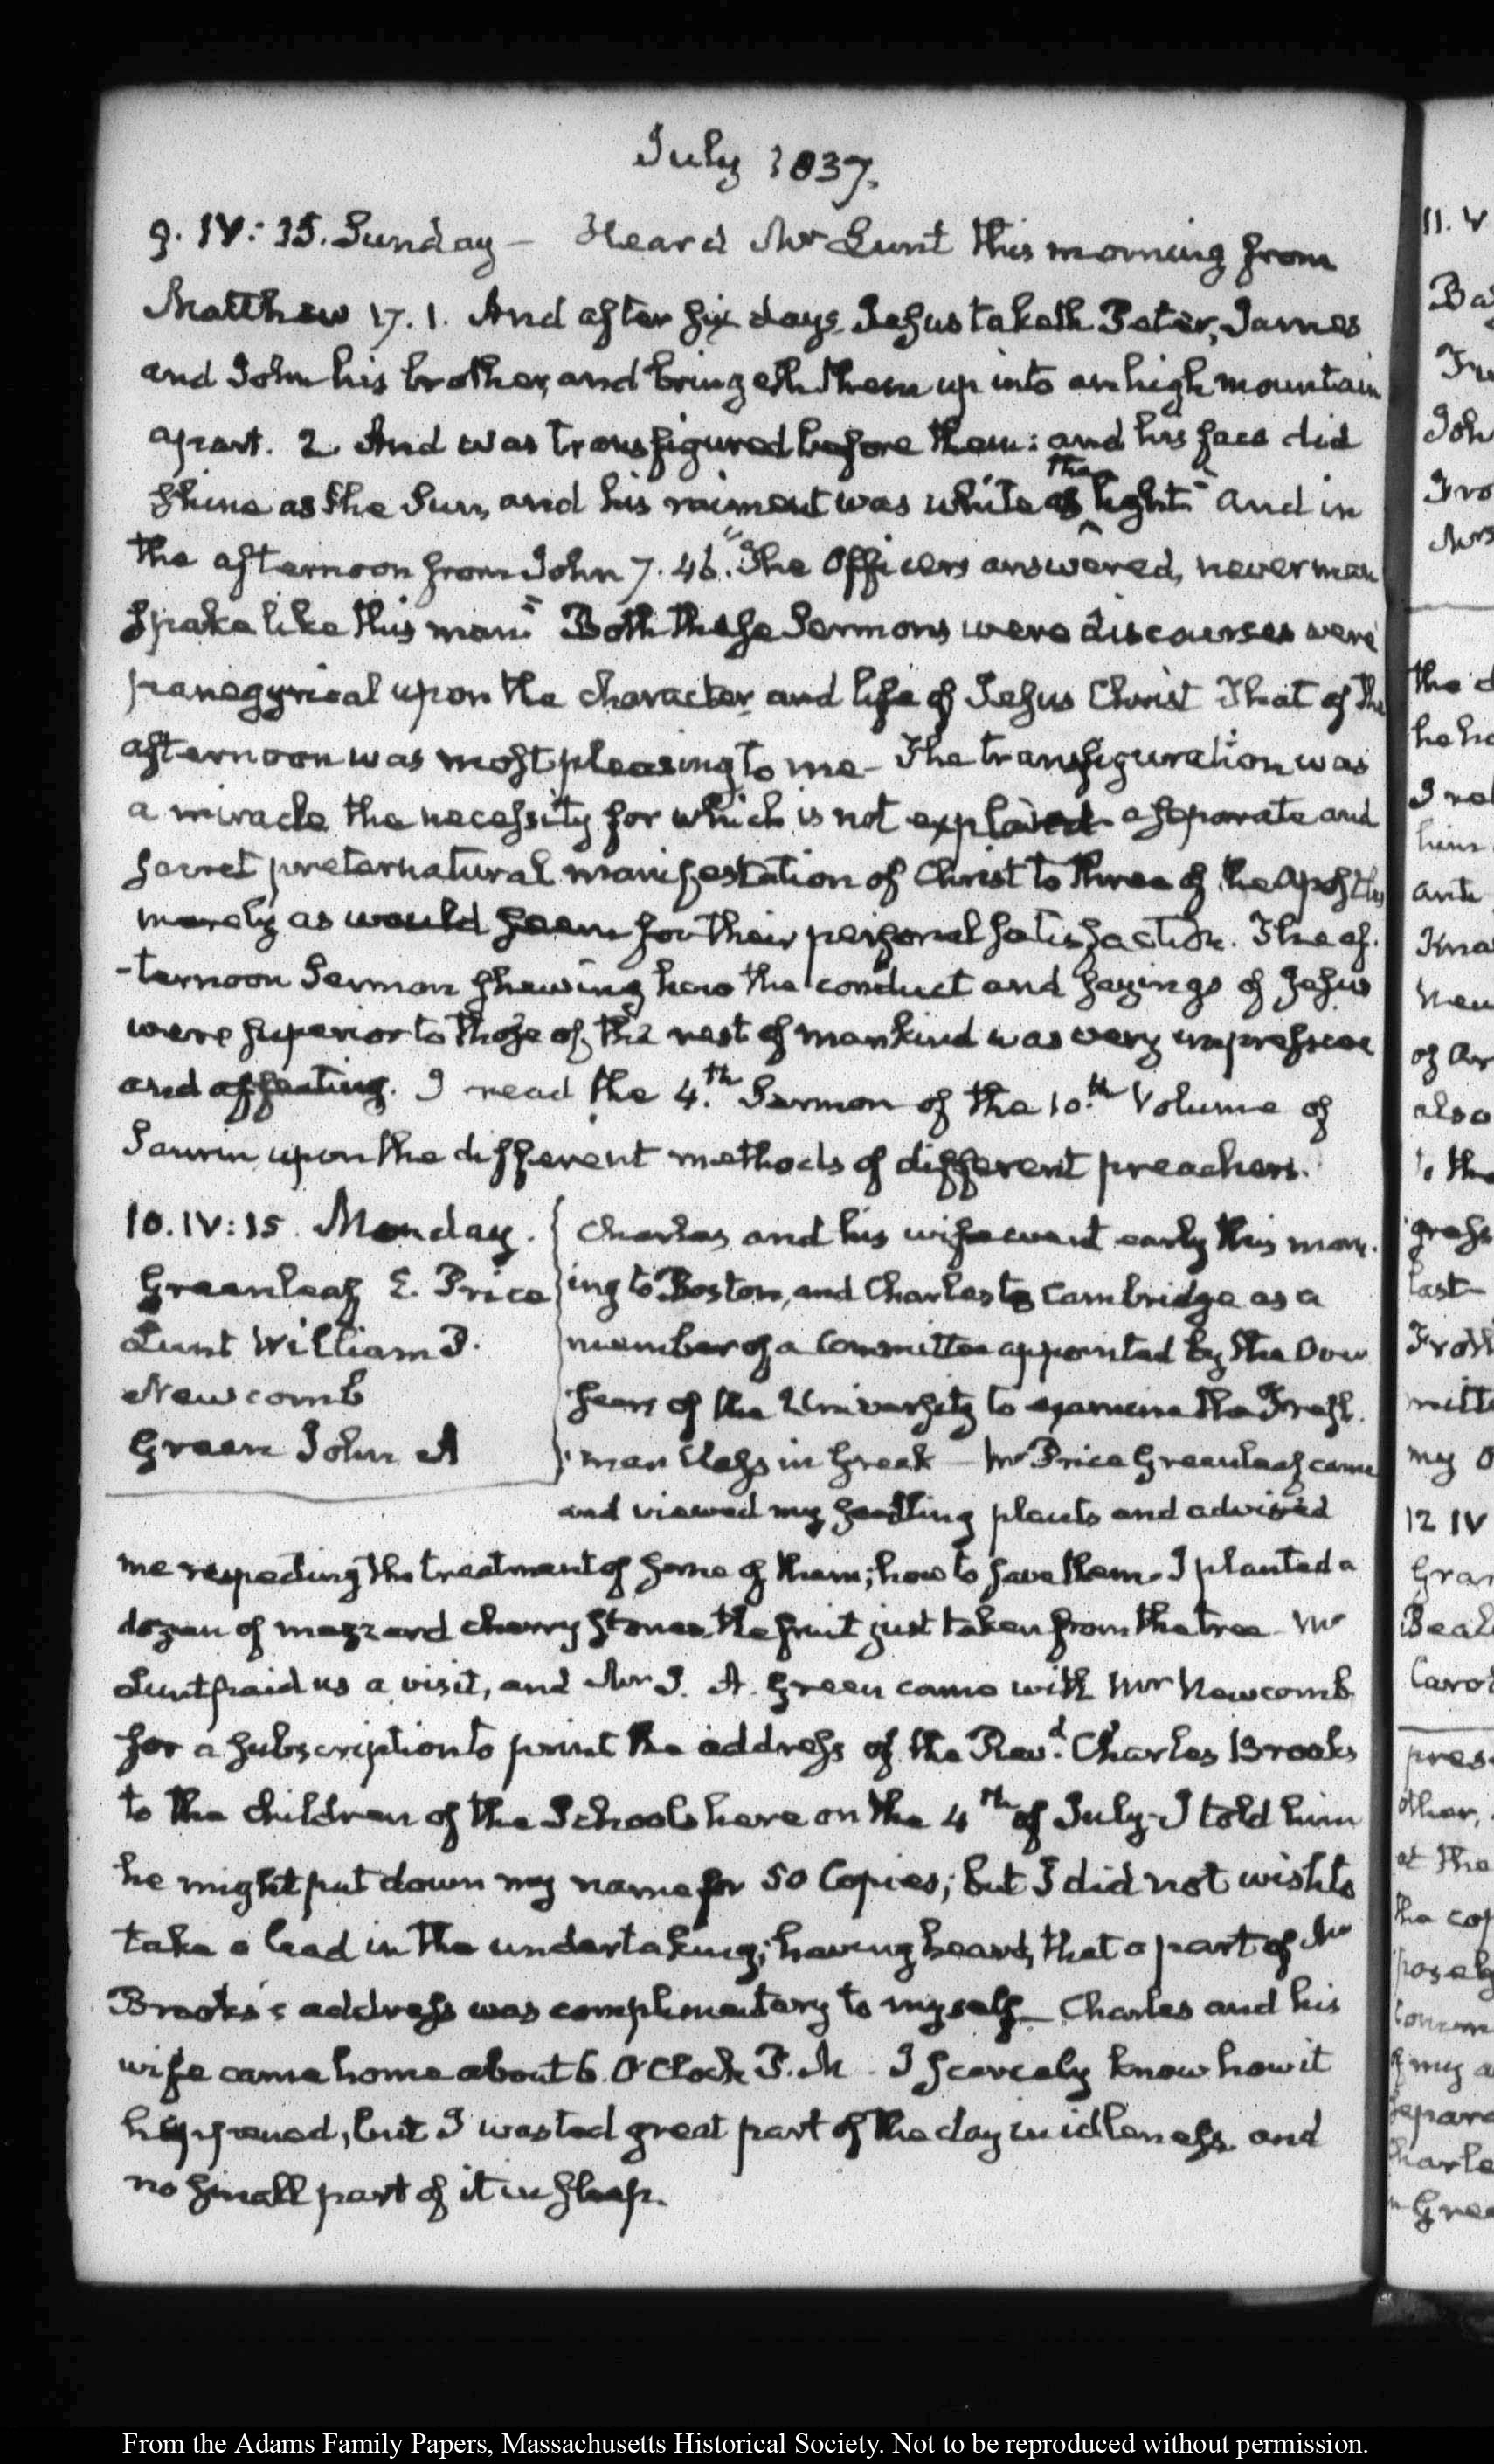 July 1837.
9. IV: 35. Sunday – Heard Mr Lunt this morning from
Matthew 17. 1. And after six days Jesus taketh Peter, James
and John his brother, and bringeth them up into an high mountain
apart. 2. And was transfigured before them: and his face did
shine as the Sun, and his raiment was white as the light." And in
the afternoon from John 7. 46. "The Officers answered, never man
spake like this man." Both these Sermons were discourses were
panegyrical upon the character and life of Jesus Christ That of the
afternoon was most pleasing to me – The transfiguration was
a miracle the necessity for which is not explained a separate and
secret preternatural manifestation of Christ to three of the Apostles
merely as would seem for their personal satisfaction. The af-
-ternoon Sermon shewing how the conduct and sayings of Jesus
were superior to those of the rest of mankind was very impressive
and affecting. I read the 4.th Sermon of the 10.th Volume of
Saurin, upon the different methods of different preachers.
10. IV: 15. Monday.
Greenleaf E. Price
Lunt William P.
Newcomb
Green John A
Charles and his wife went early this morn-
ing to Boston, and Charles to Cambridge as a
member of a Committee appointed by the Over
seers of the University to examine the Fresh-
man Class in Greek – Mr Price Greenleaf came
and viewed my seedling plants and advised
me respecting the treatment of some of them; how to save them. I planted a
dozen of mazzard cherry stones, the fruit just taken from the tree – Mr
Lunt paid us a visit, and Mr J. A. Green came with Mr Newcomb
for a subscription to print the address of the Rev.d Charles Brooks
to the children of the Schools here on the 4th of July – I told him
he might put down my name for 50 Copies; but I did not wish to
take a lead in the undertaking; having heard, that a part of Mr
Brooks's address was complimentary to myself – Charles and his
wife came home about 6. O'Clock P.M – I scarcely know how it
happened, but I wasted great part of the day in idleness and
no small part of it in sleep.
11. V
Joh
of
also
12 IV
Gra
Beal
other,
at the
of my a
Charle
From the Adams Family Papers, Massachusetts Historical Society. Not to be reproduced without permission.